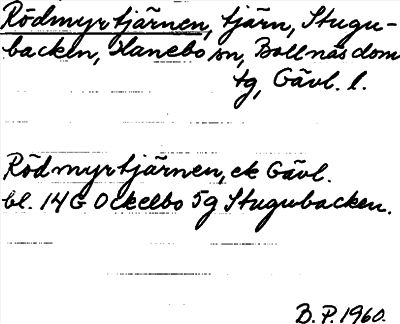 Rödmyrtjärnen, tjärn, Stugu-
backen, Hanebo sn, Bollnäs dom
tg, Gävl. l.
Rödmyrtjärnen, ek Gävl.
bl. 14G Ockelbo 5g Stugubacken.
B.P. 1960.